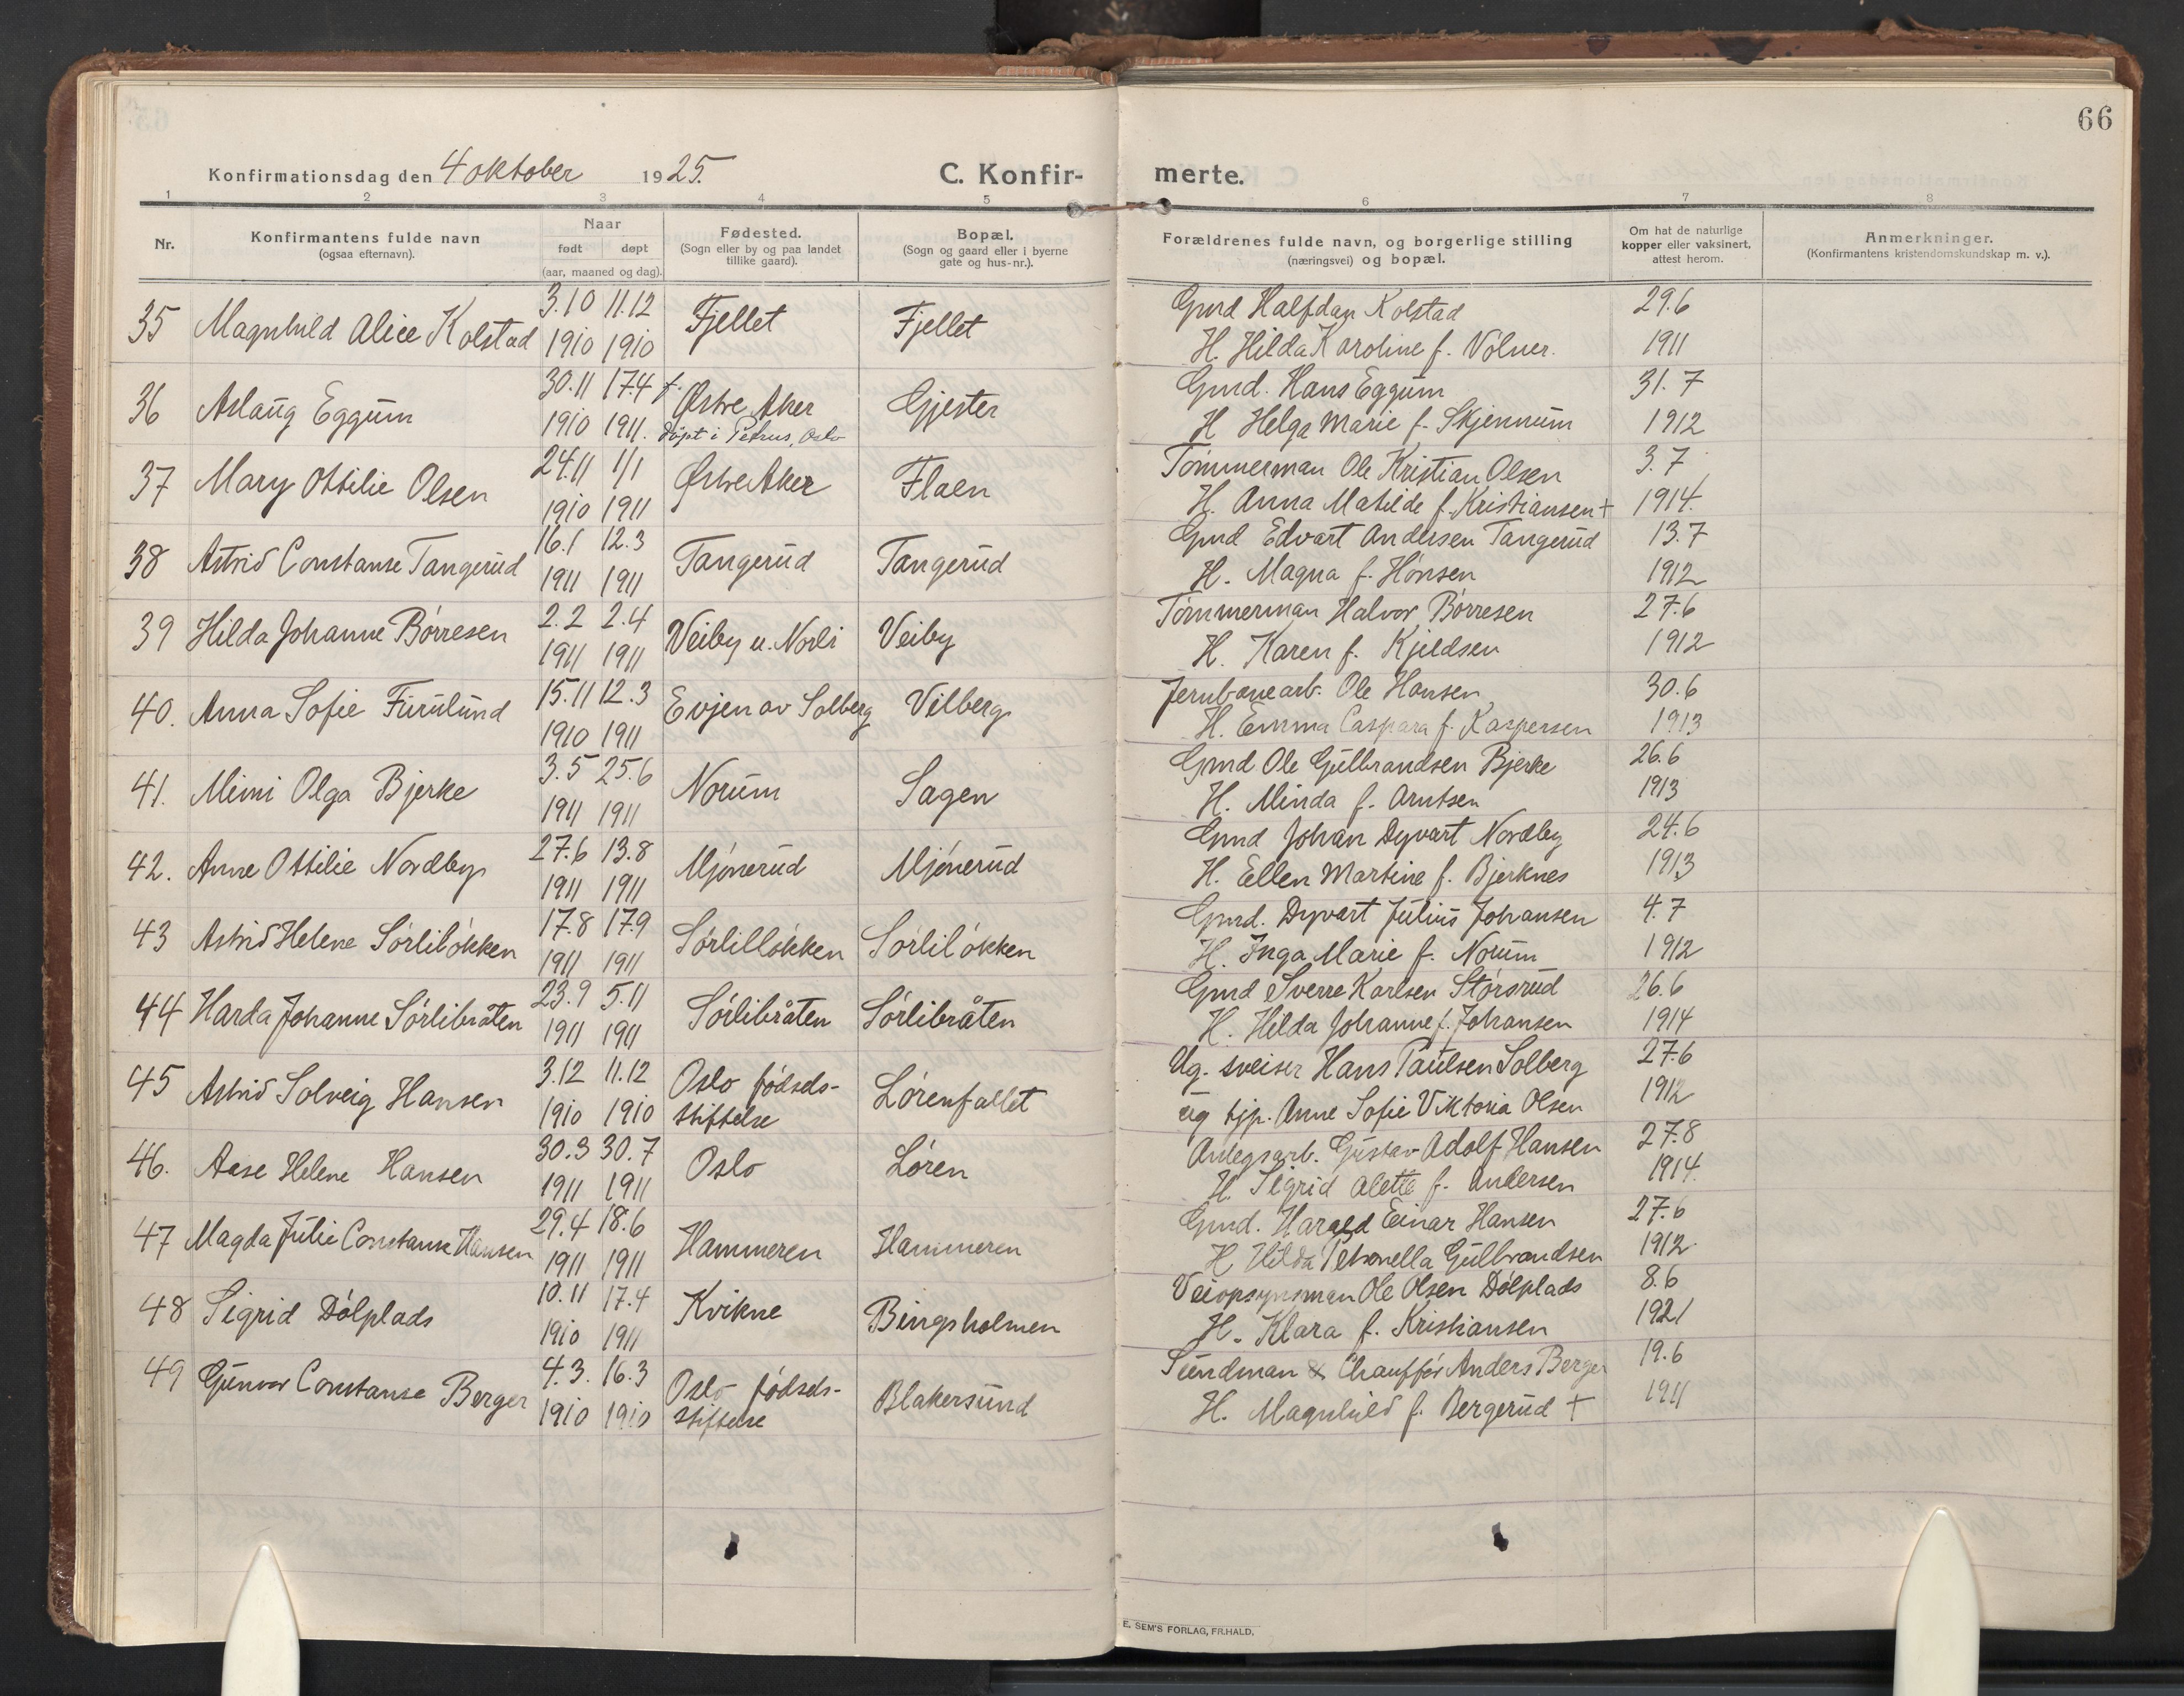 66
Konfirmationsdag den 4 oktober 1925.
C. Konfirmerte.
1 2 3 4 5 6 7 8
Nr.
Konfirmantens fulde navn
(ogsaa efternavn).
Naar
født døpt
(aar, maaned og dag).
Fødested.
(Sogn eller by og paa landet
tillike gaard).
Bopæl.
(Sogn og gaard eller i byerne
gate og hus-nr.).
Forældrenes fulde navn, og borgerlige stilling
(næringsvei) og bopæl.
Om hat de naturlige
kopper eller vaksinert,
attest herom.
Anmerkninger.
(Konfirmantens kristendomskundskap m. v.).
35 Magnhild Alice Kolstad 3.10 1910 11.12 1910 Fjellet Fjellet
Gmd Halfdan Kolstad 29.6
H. Hilda Karoline f. Volner. 1911
36 Aslaug Eggum 30.11 1910 17.4 1911. f. Østre Aker Gjester
døpt i Petrus, Oslo
Gmd. Hans Eggum 31.7
H Helga Marie f. Skjennum 1912
37 Mary Ottilie Olsen 24.11 1910 1/1 1911 Østre Aker Flaen
Tømmerman Ole Kristian Olsen 3.7
H. Anna Matilde f. Kristiansen + 1914.
38 Astrid Constanse Tangerud 16.1 1911 12.3 1911 Tangerud Tangerud
Gmd Edvart Andersen Tangerud 13.7
H. Magna f. Hønsen 1912
39 Hilda Johanne Børresen 2.2 1911 2.4 1911 Veiby u. Norli Veiby
Tømmerman Halvor Børresen 27.6
H. Karen f. Kjeldsen 1912
40. Anna Sofie Furulund 15.11 1910 12.3 1911 Evjen av Solberg Vilberg
Jernbanearb. Ole Hansen 30.6
H. Emma Caspara f. Kaspersen 1913
41. Mimi Olga Bjerke 3.5 1911 25.6 1911 Norum Sagen
Gmd Ole Gulbrandsen Bjerke 26.6
H. Minda f. Arntsen 1913
42. Anne Ottilie Nordby 27.6 1911 13.8 1911 Mjønerud Mjønerud
Gmd Johan Dyvart Nordby 24.6
H. Ellen Martine f. Bjerknes 1913
43 Astrid Helene Sørliløkken 17.8 1911 17.9 1911 Sørlilløkken Sørliløkken
Gmd. Dyvart Julius Johansen 4.7
H. Inga Marie f. Norum 1912
44 Harda Johanne Sørlibråten 23.9 1911 5.11 1911 Sørlibråten Sørlibråten
Gmd Sverre Karlsen Størsrud 26.6
H. Hilda Johanne f. Johansen 1914
45 Astrid Solveig Hansen 3.12 1910 11.12 1910 Oslo fødsels- Lørenfallet
stiftelse
Ug. sveiser Hans Paulsen Solberg 27.6
ug tjp. Anne Sofie Viktoria Olsen 1912
46. Aase Helene Hansen 30.3 1911 30.7 1911 Oslo Løren
Anlegsarb. Gustav Adolf Hansen 27.8
H. Sigrid Alette f. Andersen 1914.
47 Magda Julie Constanse Hansen 29.4 1911 18.6 1911 Hammeren Hammeren
Gmd. Harald Einar Hansen 27.6
H Hilda Petronella Gulbrandsen 1912
48 Sigrid Dølplads 10.11 1910 17.4 1911 Kvikne Bingsholmen
Veiopsynsman Ole Olsen Dølplads 8.6
H. Klara f. Kristiansen 1921
49 Gunvor Constanse Berger 4.3. 1910 16.3 1910 Oslo fødsels- Blakersund
stiftelse
Sundman & Chauffør Anders Berger 19.6
H. Magnhild f. Bergerud + 1911
E. SEM'S FORLAG, FR.HALD.